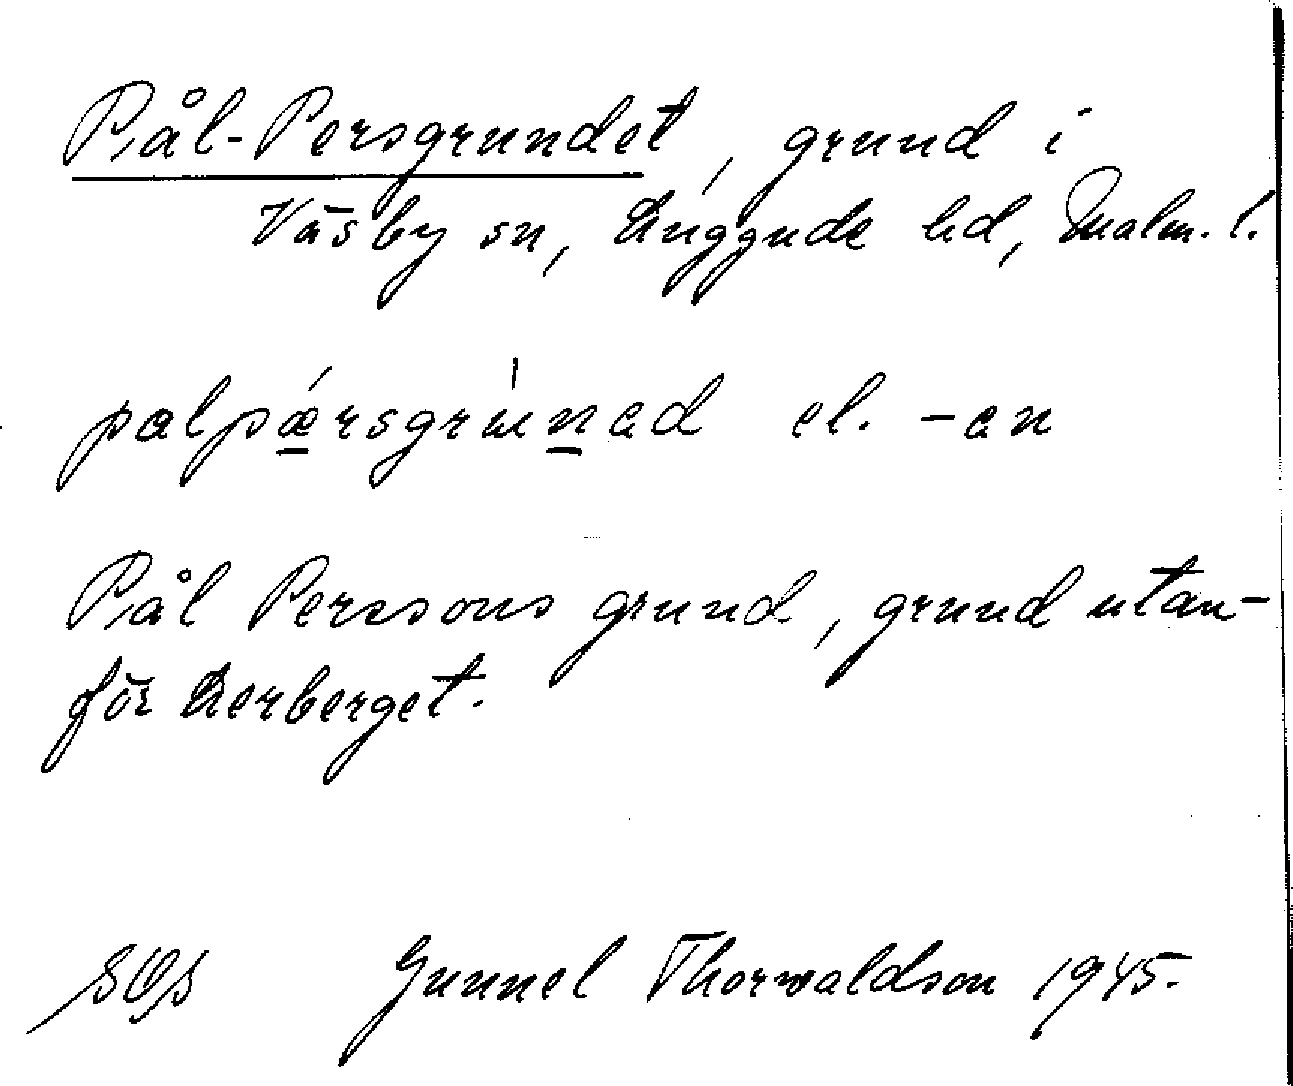 Pål-Persgrundet, grund i
Väsby sn, Luggude hd, Malm. l.
palpǽrsgrùnad el. -an
Pål Perssons grund, grund utan-
för Lerberget.
SOS Gunnel Thorwaldson 1945.